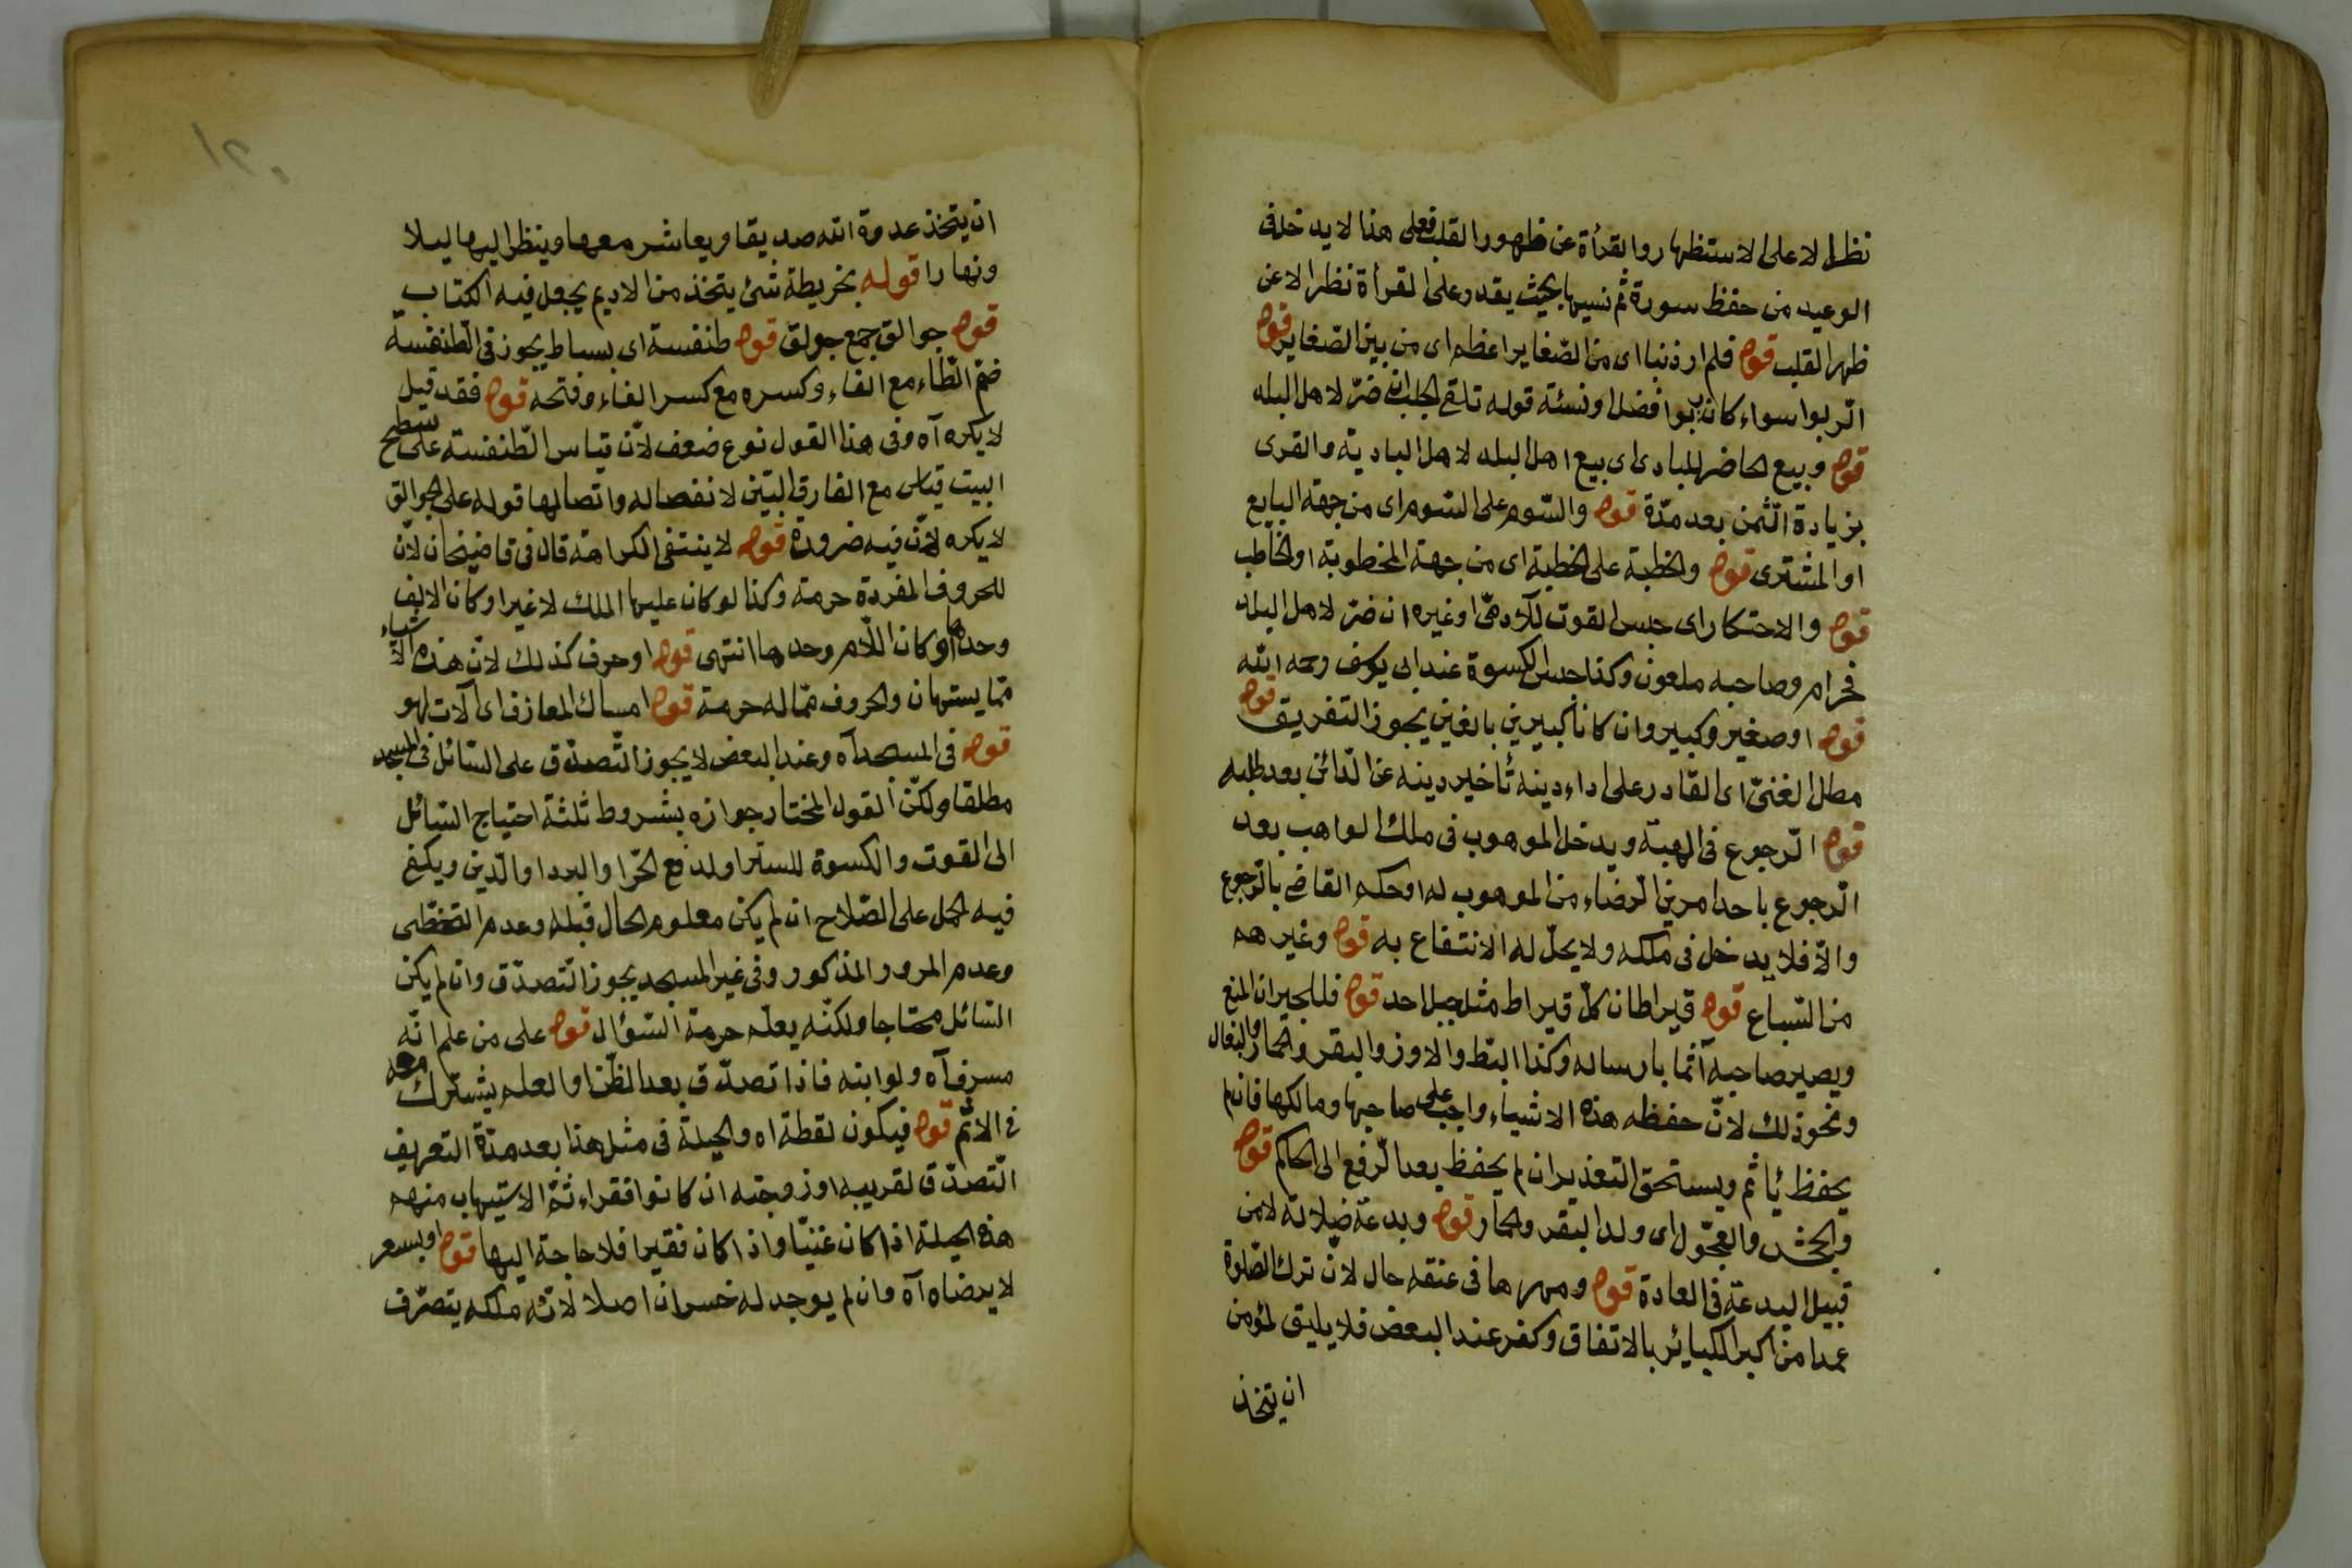 نظرا لا على الاستظهار والقرأة عن ظهور القلب فعلى هذا لا يدخل فى
الوعيد من حفظ سورة ثم نسيها بحيث يقدر على القرأة نظرا لا عن
ظهر القلب قوله فلم ار ذنبا اى من الصّغاير اعظم اى من بين الصّغاير قوله
الرّبوا سواء كان ربوا فضل او نسئة قوله تلقى الجلب ان ضرّ لاهل البلد
قوله وبيع الحاضر للبادى اى بيع اهل البلد لاهل البادية والقرى
بزيادة الثّمن بعد مدّة قوله والسّوم على السّوم اى من جهة البايع
او المشترى قوله والخطبة على الخطبة اى من جهة المخطوبة او الخاطب
قوله والاحتكار اى حبس القوت للآدمىّ او غيره ان ضرّ لاهل البلد
فحرام وصاحبه ملعون وكذا حبس الكسوة عند ابى يوسف رحمه الله
قوله او صغير وكبير وان كانا كبيرين بالغين يجوز التفريق قوله
مطل الغنىّ اى القادر على اداء دينه تأخير دينه عن الدّائن بعد طلبه
قوله الرّجوع فى الهبة ويدخل الموهوب فى ملك الواهب بعد
الرّجوع باحد امرين الرّضاء من الموهوب له او حكم القاضى بالرّجوع
والّا فلا يدخل فى ملكه ولا يحلّ له الانتفاع به قوله وغيرهم
من السّباع قوله قيراطان كلّ قيراط مثل جبل احد قوله فللجيران المنع
ويصير صاحبه آثما بارساله وكذا البّط والاوز والبقر والحمار والبغال
ونحو ذلك لانّ حفظه هذه الاشياء واجب على صاحبها ومالكها فان لم
يحفظ يأثم ويستحق التعذير ان لم يحفظ بعد الرّفع الى الحاكم قوله
والجحش والعجّول اى ولد البقر والحمار قوله وبدعة ضلالة لا من
قبيل البدعة فى العادة قوله ومهرها فى عنقه حال لانّ ترك الصّلوة
عمدا من اكبر الكبائر بالاتفاق وكفر عند البعض فلا يليق لمؤمن
ان يتخذ
ان يتخذ عدوة الله صديقا ويعاشر معها وينظر اليها ليلا
ونهارا قوله بخريطة شئ يتخذ من الاديم يجعل فيه الكتاب
قوله جوالق جمع جولق قوله طنفسة اى بساط يجوز فى الطّنفسة
ضمّ الطّاء مع الفاء وكسره مع كسر الفاء وفتحه قوله فقد قيل
لا يكره آه وفى هذا القول نوع ضعف لانّ قياس الطّنفسة على سطح
البيت قياس مع الفارق البيّن لانفصاله واتصالها قوله على الجوالق
لا يكره لانّ فيه ضرورة قوله لا ينتفى الكراهة قال فى قاضيخان لانّ
للحروف المفردة حرمة وكذا لو كان عليها الملك لا غير او كان الالف
وحدها او كان اللّام وحدها انتهى قوله او حرف كذلك لانّ هذه الاشياء
ممّا يستهان والحروف ممّا له حرمة قوله امساك المعازف اى آلات لهو
قوله فى المسجد آه وعند البعض لا يجوز التّصدّق على السّائل فى المسجد
مطلقا ولكنّ القول المختار جوازه بشروط ثلثة احتياج السّائل
الى القوت والكسوة للستر او لدفع الحّر او البرد او الدّين ويكفى
فيه الحمل على الصّلاح ان لم يكن معلوم الحال قبله وعدم التخطّى
وعدم المرور المذكور وفى غير المسجد يجوز التّصدّق وان لم يكن
السّائل محتاجا ولكنّه يعلّم حرمة السّؤال قوله على من علم انّه
مسرف آه ولو ابنه فاذا تصدّق بعد الظّن او العلم يشترك معه
فى الاثم قوله فيكون لقطة اه والحيلة فى مثل هذا بعد مدّة التعريف
التّصدّق لقريبه او زوجته ان كانوا فقراء ثمّ الاستيهاب منهم
هذه الحيلة اذا كان غنيّا واذا كان فقيرا فلا حاجة اليها قوله او بسعر
لا يرضاه آه وان لم يوجد له خسران اصلا لانّه ملكه يتصرّف